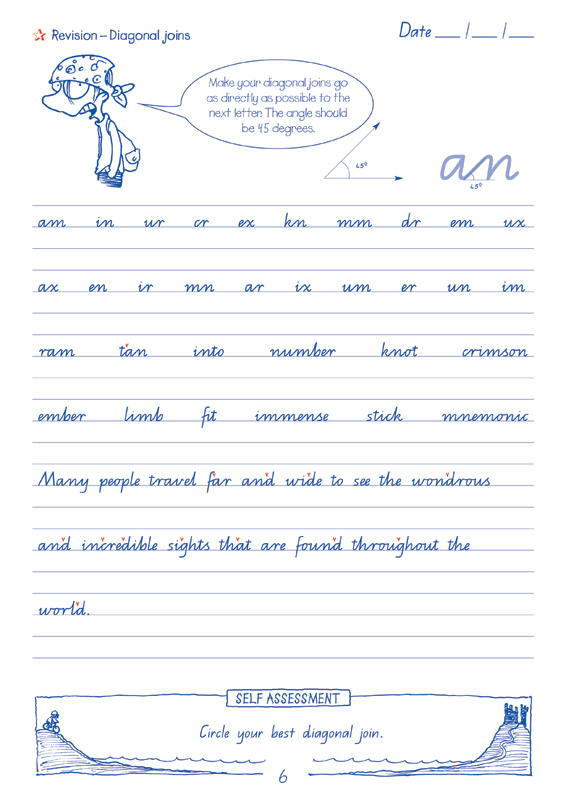 Revision – Diagonal joins
Date ___ / ___ / ___
Make your diagonal joins go
as directly as possible to the
next letter. The angle should
be 45 degrees.
45º
an
45º
am in ur cr ex kn mm dr em ux
ax en ir mn ar ix um er un im
ram tan into number knot crimson
ember limb fit immense stick mnemonic
Many people travel far and wide to see the wondrous
and incredible sights that are found throughout the
world.
SELF ASSESSMENT
Circle your best diagonal join.
6